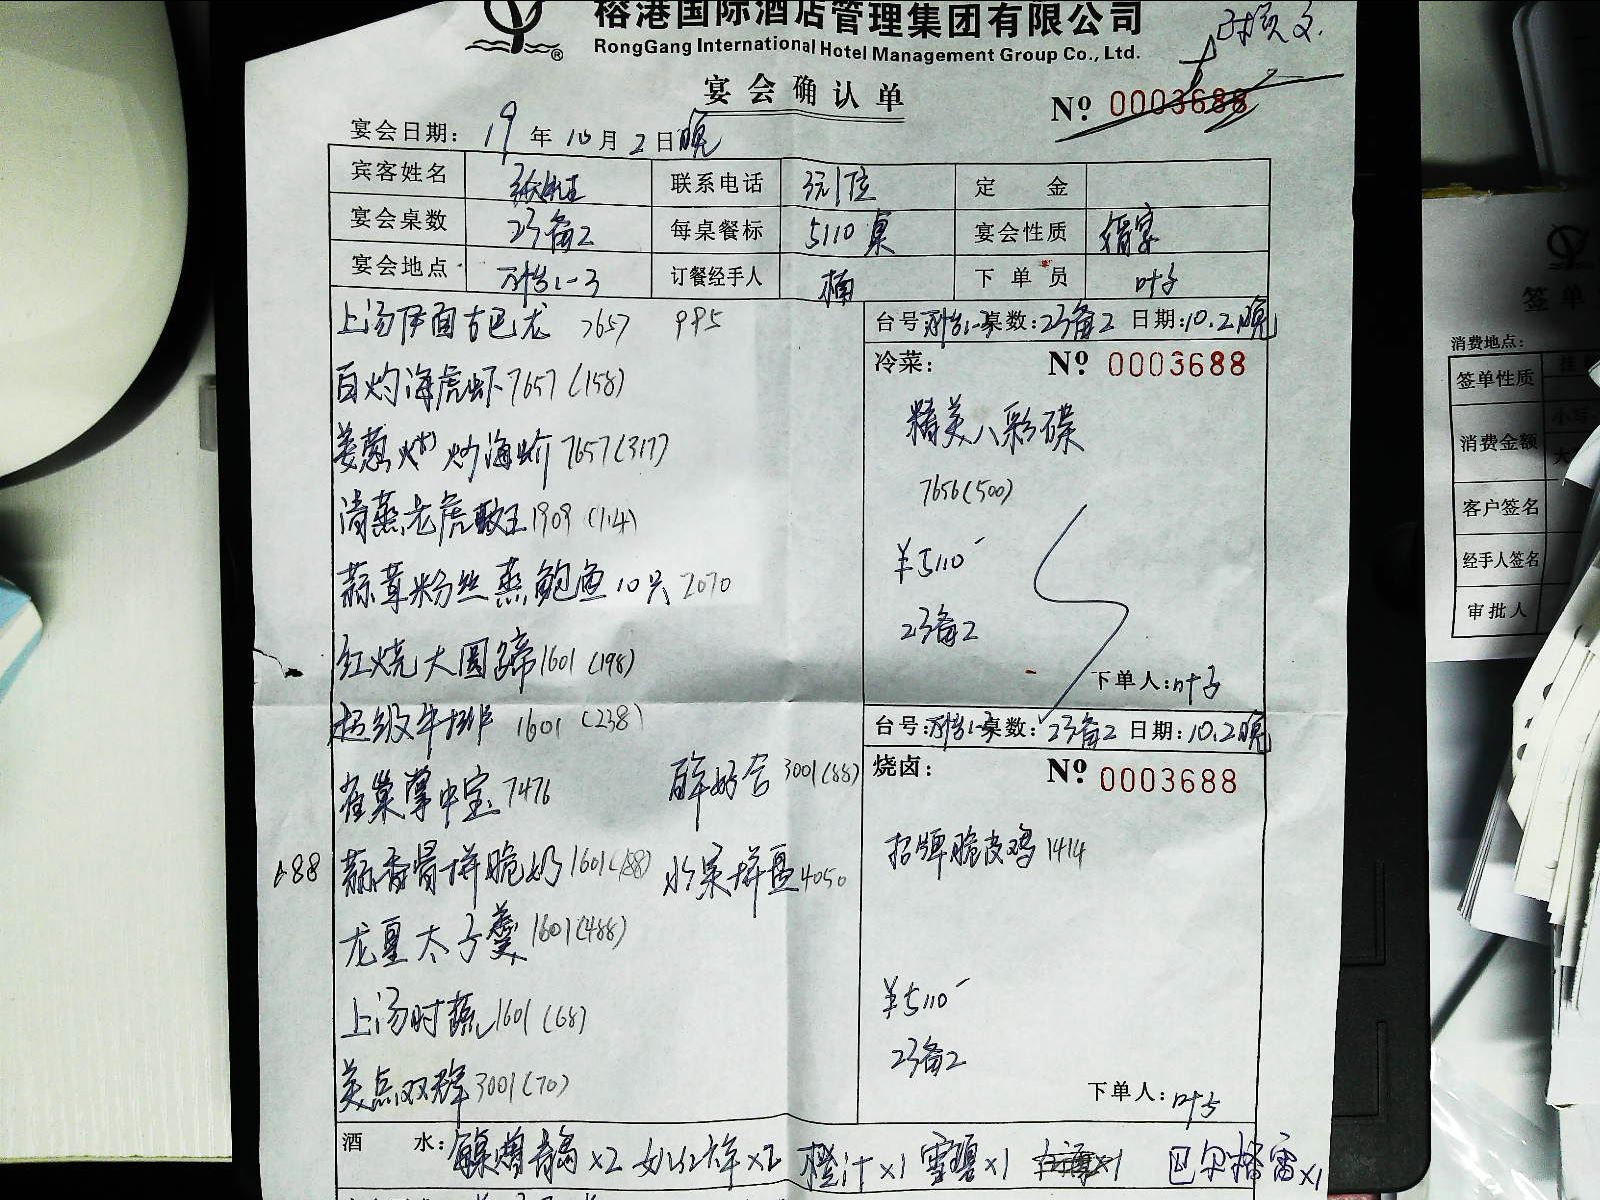 榕港国际酒店管理集团有限公司
RongGang International Hotel Management Group Co., Ltd.
宴会确认单
Nº 0003688
宴会日期: 19 年 10 月 2 日晚
宾客姓名 联系电话 定金
宴会桌数 23备2 每桌餐标 5110 桌 宴会性质 婚宴
宴会地点 订餐经手人 楠 下单员 叶子
上汤伊面古巴龙 7657 995
白灼海虎虾 7657 (158)
姜葱炒海蚧 7657 (317)
清蒸老虎斑王 1909 (114)
蒜茸粉丝蒸鲍鱼10只 2070
红烧大圆蹄 1601 (198)
超级牛排 1601 (238)
雀巢掌中宝 7476 百年好合 3001 (88)
688 蒜香骨拼脆奶 1601 (188) 水果拼盘 4050
龙皇太子羹 1601 (488)
上汤时蔬 1601 (68)
美点双辉 3001 (70)
台号: 桌数: 23备2 日期: 10.2晚
冷菜: Nº 0003688
精美八彩碟
7656 (500)
¥5110
23备2
下单人: 叶子
台号: 桌数: 23备2 日期: 10.2晚
烧卤: Nº 0003688
招牌脆皮鸡 1414
¥5110
23备2
下单人: 叶子
酒水: ×2 ×2 橙汁×1 雪碧×1 ×1 巴尔格雷×1
签单
消费地点:
签单性质
消费金额 小写
大
客户签名
经手人签名
审批人